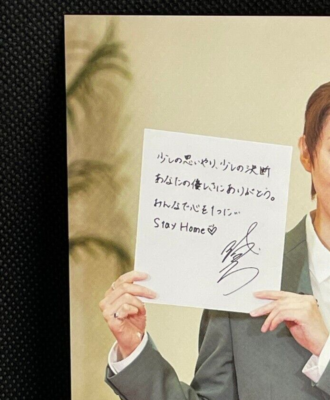 少しの思いやり、少しの決断
あなたの優しさにありがとう。
みんなで心を1つに…
Stay Home♡